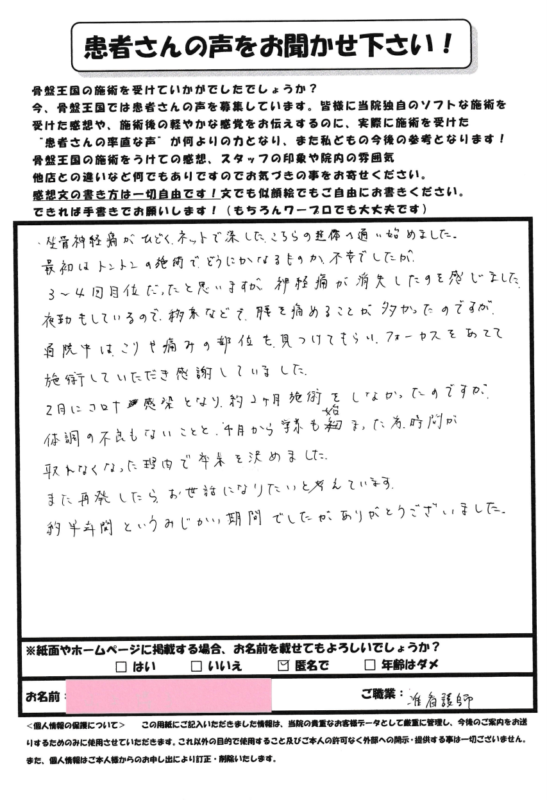 患者さんの声をお聞かせ下さい！
骨盤王国の施術を受けていかがでしたでしょうか？
今、骨盤王国では患者さんの声を募集しています。皆様に当院独自のソフトな施術を
受けた感想や、施術後の軽やかな感覚をお伝えするのに、実際に施術を受けた
"患者さんの率直な声"が何よりの力となり、また私どもの今後の参考となります！
骨盤王国の施術をうけての感想、スタッフの印象や院内の雰囲気
他店との違いなど何でもありですのでお気づきの事をお寄せください。
感想文の書き方は一切自由です！文でも似顔絵でもご自由にお書きください。
できれば手書きでお願いします！（もちろんワープロでも大丈夫です）
・坐骨神経痛がひどく、ネットで探した、こちらの整体へ通い始めました。
最初はトントンの施術でどうにかなるものか、不安でしたが、
3〜4回目位だったと思いますが、神経痛が消失したのを感じました。
夜勤もしているので、移乗などで、腰を痛めることが多かったのですが、
通院中は、こりや痛みの部位も見つけてもらい、フォーカスをあてて
施術していただき感謝していました。
2月にコロナ感染となり、約2ヶ月施術をしなかったのですが、
体調の不良もないことと、4月から学業も始まった為、時間が
取れなくなった理由で卒業を決めました。
また再発したら、お世話になりたいと考えています。
約半年間というみじかい期間でしたが、ありがとうございました。
※紙面やホームページに掲載する場合、お名前を載せてもよろしいでしょうか？
□ はい　□ いいえ　☑ 匿名で　□ 年齢はダメ
お名前：　ご職業：准看護師
＜個人情報の保護について＞　この用紙にご記入いただきました情報は、当院の貴重なお客様データとして厳重に管理し、今後のご案内をお送
りするためのみに使用させていただきます。これ以外の目的で使用すること及びご本人の許可なく外部への開示・提供する事は一切ございません。
また、個人情報はご本人様からのお申し出により訂正・削除いたします。